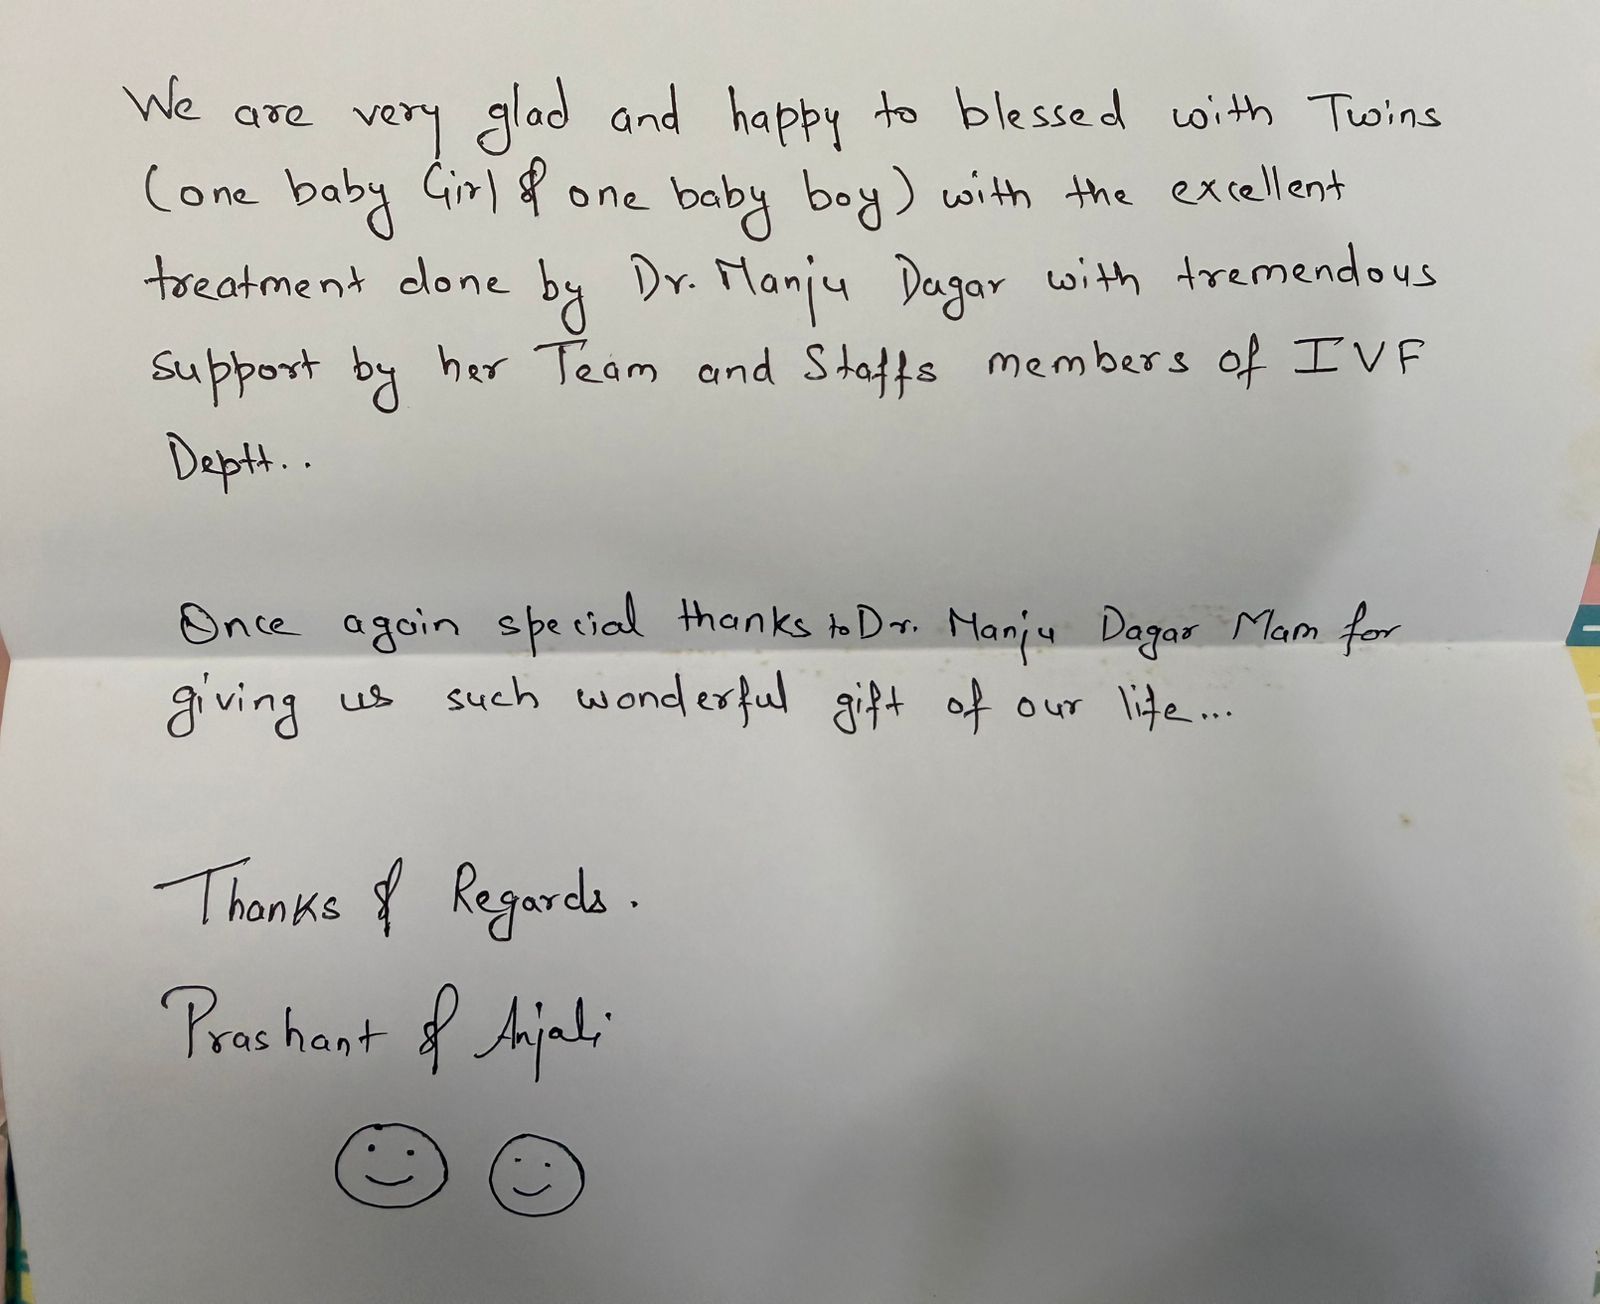 We are very glad and happy to blessed with Twins
(one baby Girl & one baby boy) with the excellent
treatment done by Dr. Manju Dagar with tremendous
support by her Team and Staffs members of IVF
Deptt..
Once again special thanks to Dr. Manju Dagar Mam for
giving us such wonderful gift of our life...
Thanks & Regards.
Prashant & Anjali